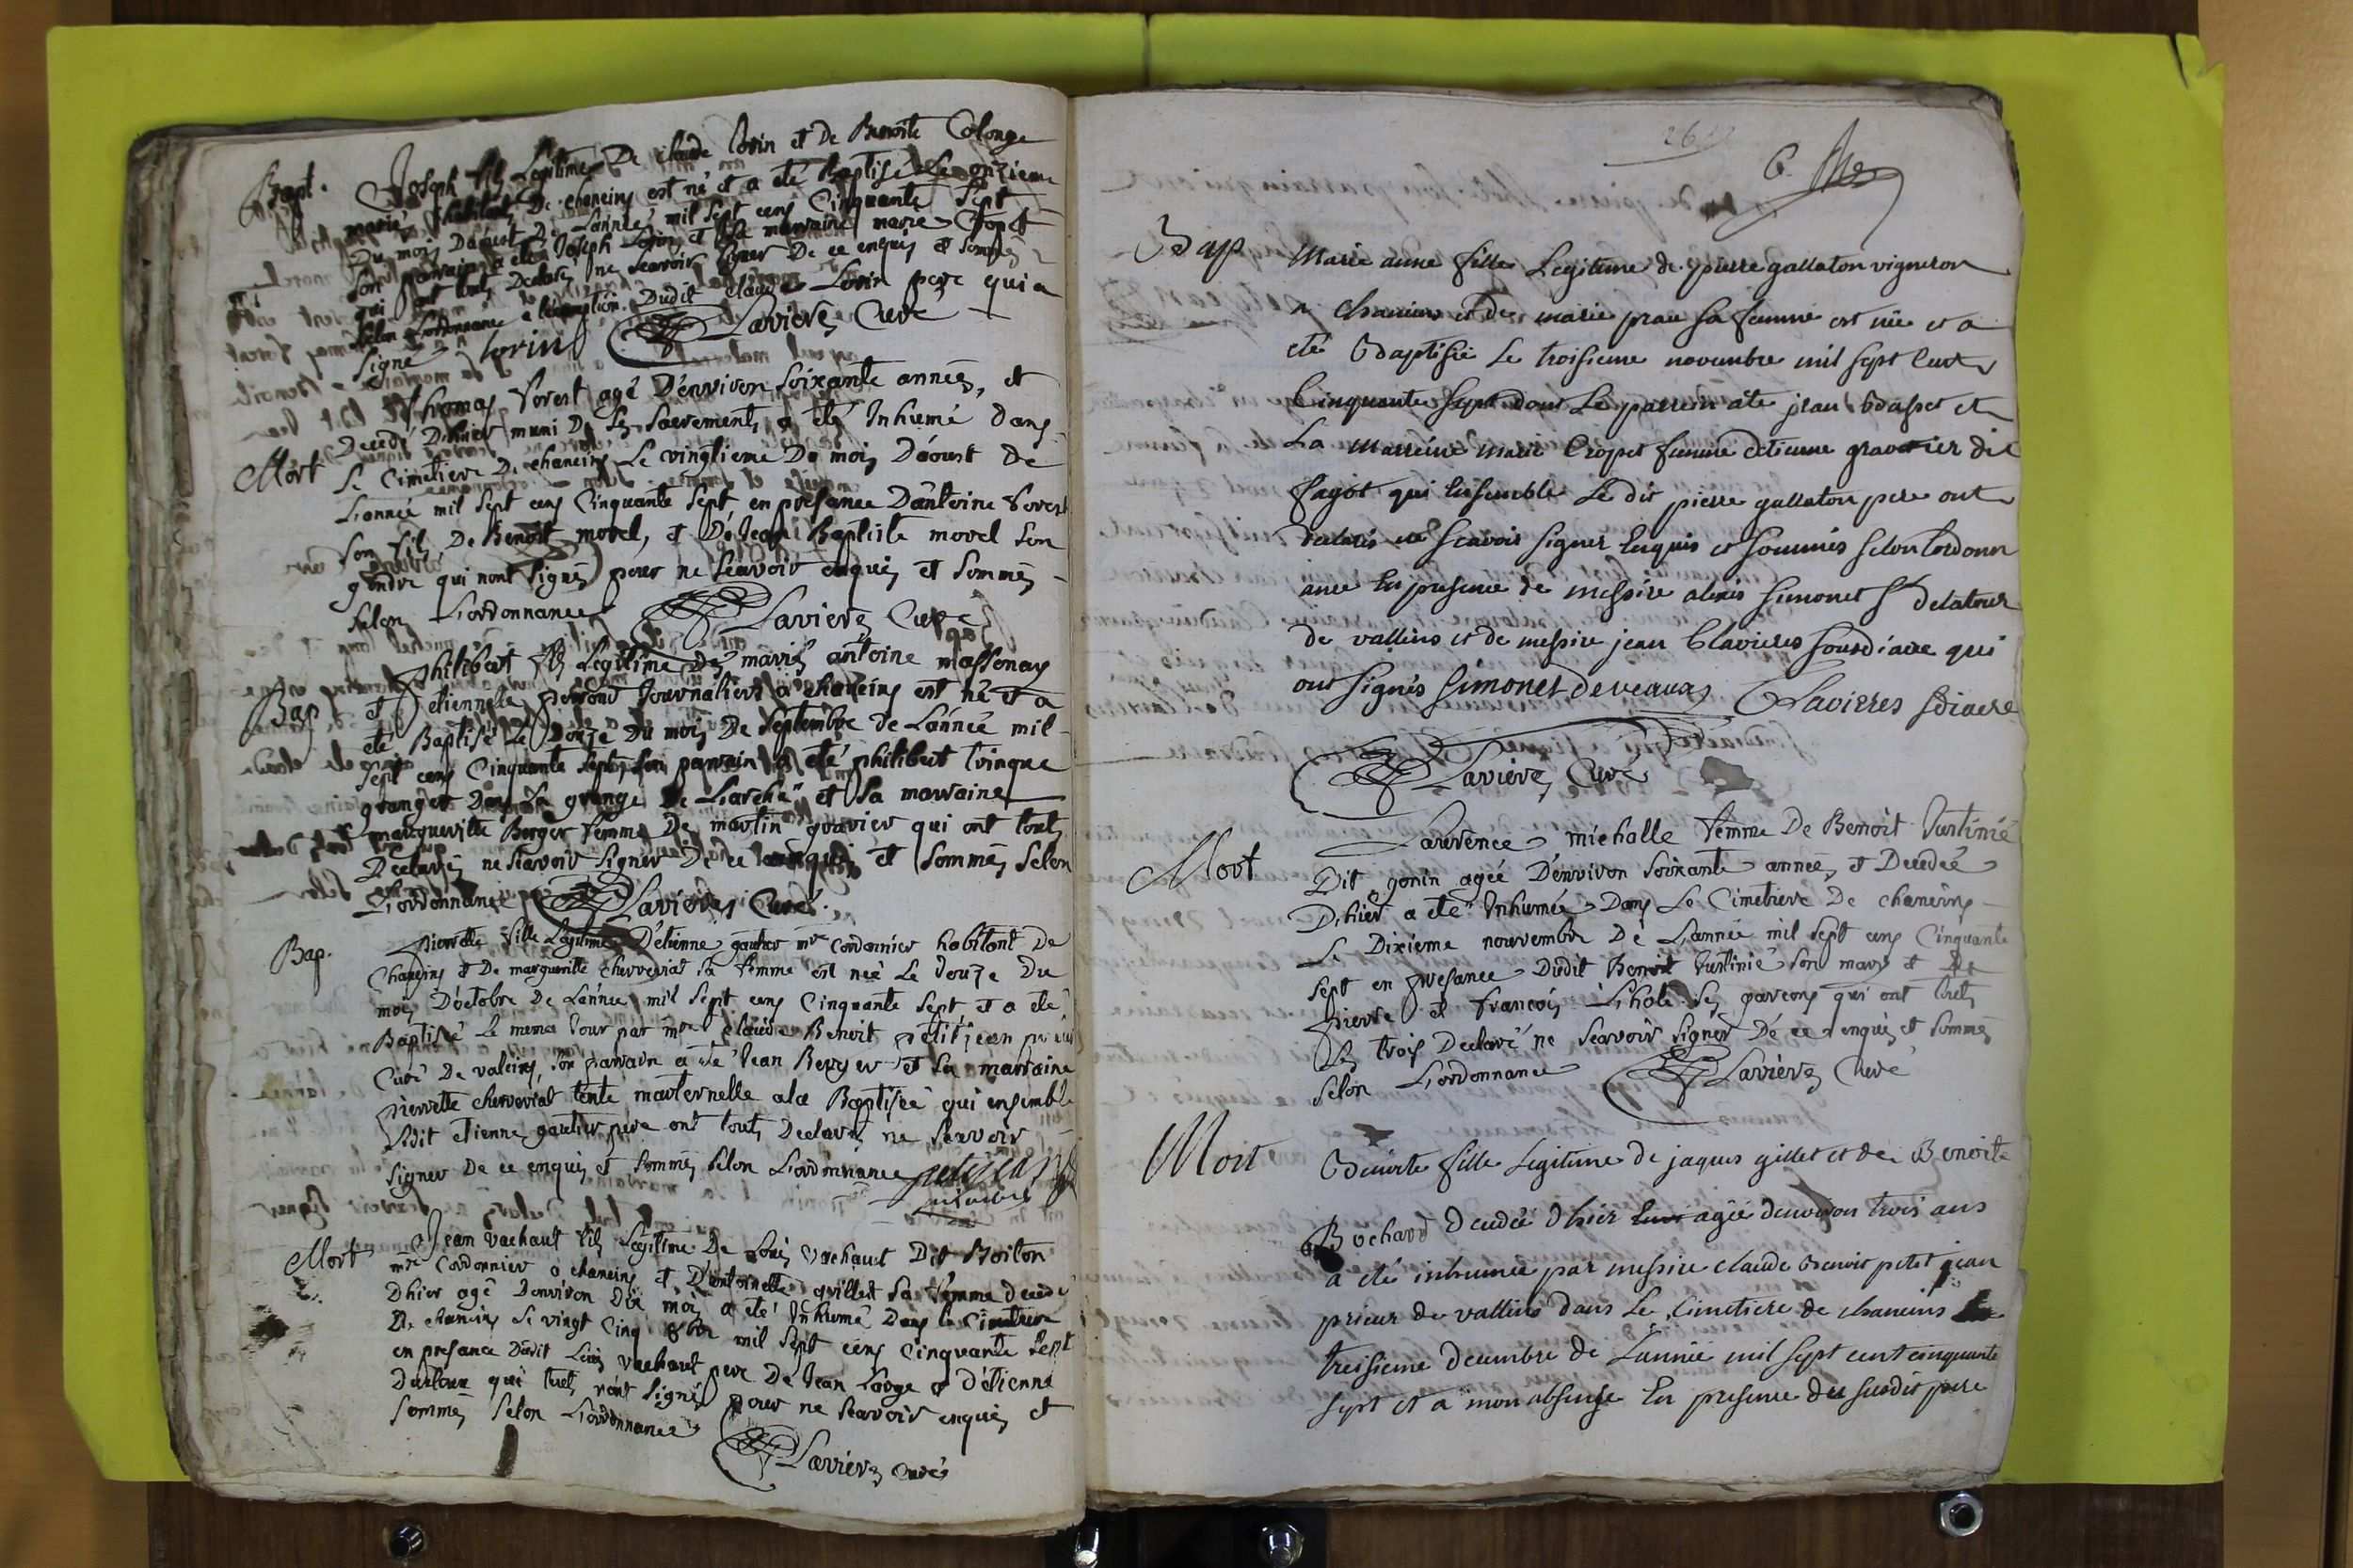 Bapt. Joseph fils Legitime De claude Lorin et de Benoite Colonge
mariés habitant De chaneins est né et a été Baptisé Le onzieme
Du mois Daoust De Lannée mil Sept cens Cinquante Sept
Son parrain a été Joseph Lorin et Sa marraine marie
qui ont touts Declarés ne Scavoir Signer De ce enquis et Sommés
Selon Lordonnance a l'exemption Dudit claude Lorin pere qui a
Signé Lorin Lavieres Curé
Thomas Forest agé D'environ Soixante années, et
Decedé D'hier muni De Ses Sacrements, a été Inhumé dans
Mort Le Cimetiere De chaneins Le vingtieme Du mois D'aoust de
L'année mil Sept cens Cinquante Sept, en presance D'antoine Forest
Son fils, De Benoit morel, et De Jean Baptiste morel Son
gendre qui n'ont Signés pour ne Scavoir enquis et Sommés
Selon L'ordonnance Lavieres Curé
philibert fils Legitime Des mariés antoine massonay
Bap et etiennette perrond Journaliers a chaneins est né et a
été Baptisé Le Douze Du mois De Septembre de Lannée mil
Sept cens Cinquante Sept, Son parrain a été philibert
granger Dans La grange De L'arche et Sa marraine
margueritte Berger femme De martin gravier qui ont touts
Declarés ne Scavoir Signer De ce enquis et Sommés Selon
L'ordonnance Lavieres Curé.
Bap. pierrette fille Legitime D'etienne gautier mre Cordonnier habitant De
Chaneins et De margueritte cherverviat Sa femme est neé Le Douze Du
mois D'octobre De Lannée mil Sept cens Cinquante Sept, et a été
Baptisée Le meme Jour par mre claude Benoit petitjean
Curé De valeins, Son parrain a été Jean Berger et Sa marraine
pierrette cherverviat tente maternelle a la Baptisée qui ensemble
Ledit etienne gautier pere ont touts Declarés ne Scavoir
Signer De ce enquis et Sommés Selon L'ordonnance petitjean
Mort Jean vachaut fils Legitime De Loüis vachaut Dit Boiton
mre Cordonnier a chaneins et D'antoinette grillet Sa femme decedé
D'hier agé D'environ Dix mois a été Inhumé Dans Le Cimetiere
De chaneins Le vingt Cinq 8bre mil Sept cens Cinquante Sept
en presance Dudit Loüis vachaut pere De Jean Large et D'etienne
qui touts n'ont Signés pour ne Scavoir enquis et
Sommés Selon L'ordonnance
Lavieres Curé
26
6.
Bap Marie anne fille Legitime de pierre gallaton vigneron
a chaneins et de marie prau sa femme est née et a
eté Baptisée Le troisieme novembre mil sept Cent
Cinquante sept dont Le parrein a été jean Basset et
La Marreine Marie Cropet femme d'etienne gravier dit
fagot qui Ensemble Le dit pierre gallaton pere ont
declarés ne scavoir signer Enquis et sommés selon Lordonn
ance En presence de messire alexis simonet Sr delatour
de vallins et de messire jean Clavieres sousdiacre qui
ont signés Simonet Deveaux Clavieres sdiacre
Lavieres Curé
Laurence michalle femme De Benoit Justinié
Mort Dit gonin agéé D'environ Soixante années, et Decedéé
D'hier a été Inhumée Dans Le Cimetiere De chaneins
Le Dixieme nouvembre De L'année mil Sept cens Cinquante
Sept en presance Dudit Benoit Justinié Son mary et De
pierre et francois Lhote Ses garcons qui ont touts
Les trois Declaré ne Scavoir Signer De ce enquis et Sommés
Selon L'ordonnance Lavieres Curé
Mort Benoite fille Legitime de jaques gillet et de Benoite
Bochard Decedée d'hier agée d'environ trois ans
a été inhumée par messire claude Benoit petit jean
prieur de vallins dans Le Cimetiere de chaneins Le
treisieme decembre de L'année mil sept cent cinquante
sept et a mon absense En presence du susdit pere